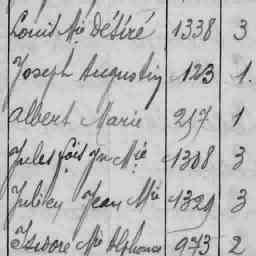 Louis Mie Désiré 1338 3
Joseph Augustin 123 1.
Albert Marie 257 1
Jules fois Jn Mie 1308 3
Julien Jean Mie 1329 3
Isidore Me Alphonse 973 2